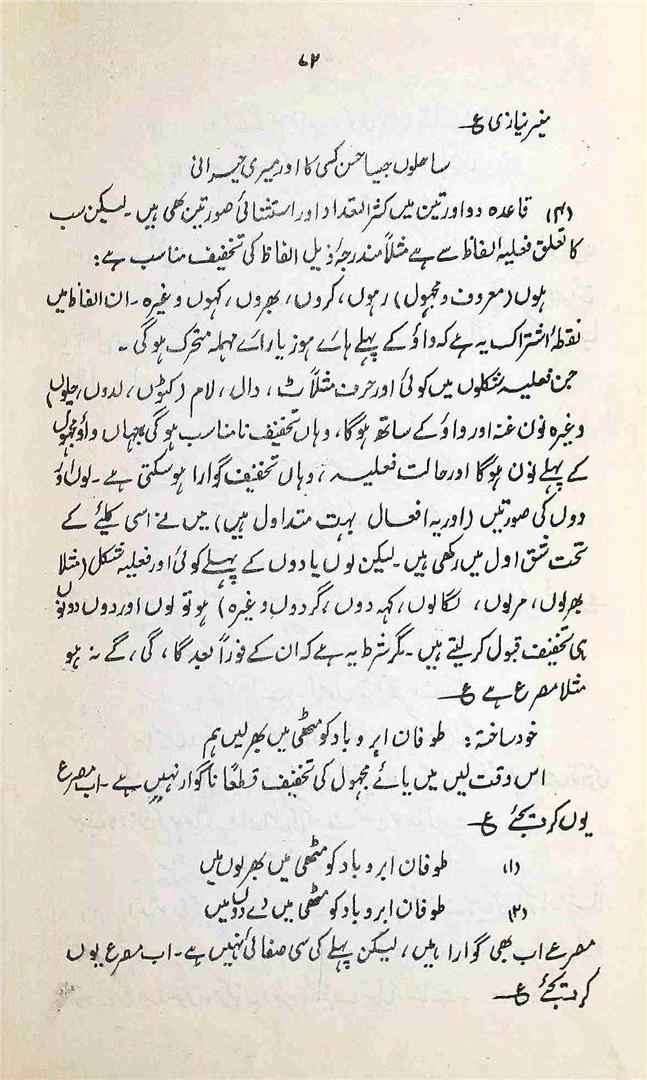 ۶۲
منیر نیازی ؏
ساحلوں جیسا حسن کسی کا اور میری حیرانی
(۴) قاعدہ دو اور تین میں کثیر التعداد اور استثنائی صورتیں بھی ہیں ۔ لیکن سب
کا تعلق فعلیہ الفاظ سے ہے مثلاً مندرجۂ ذیل الفاظ کی تخفیف مناسب ہے :
ہوں (معروف و مجہول) رہوں، کروں، بھروں، کہوں وغیرہ ۔ ان الفاظ میں
نقطۂ اشتراک یہ ہے کہ واؤ کے پہلے ہائے ہوز یا رائے مہملہ متحرک ہوگی ۔
جن فعلیہ شکلوں میں کوئی اور حرف مثلاً ٹ، دال، لام (کٹوں، لدوں، چلوں)
وغیرہ نون غنہ اور واؤ کے ساتھ ہوگا، وہاں تخفیف نامناسب ہوگی، جہاں واؤ مجہول
کے پہلے نون ہوگا اور حالت فعلیہ، وہاں تخفیف گوارا ہو سکتی ہے ۔ لوں اور
دوں کی صورتیں (اور یہ افعال بہت متداول ہیں) میں نے اسی کلیے کے
تحت شق اول میں رکھی ہیں ۔ لیکن لوں یا دوں کے پہلے کوئی اور فعلیہ شکل (مثلاً
بھر لوں، مر لوں، لگا لوں، کہہ دوں، گر دوں وغیرہ) ہو تو لوں اور دوں دونوں
ہی تخفیف قبول کر لیتے ہیں ۔ مگر شرط یہ ہے کہ ان کے فوراً بعد گا، گی، گے نہ ہو
مثلاً مصرع ہے ؏
خود ساختہ : طوفان ابر و باد کو مٹھی میں بھر لیں ہم
اس وقت لیں میں یائے مجہول کی تخفیف قطعاً ناگوار نہیں ہے ۔ اب مصرع
یوں کر دیجئے ؏
(۱) طوفان ابر و باد کو مٹھی میں بھر لوں میں
(۲) طوفان ابر و باد کو مٹھی میں دے دوں میں
مصرعے اب بھی گوارا ہیں، لیکن پہلے کی سی صفائی نہیں ہے ۔ اب مصرع یوں
کر دیجئے ؏